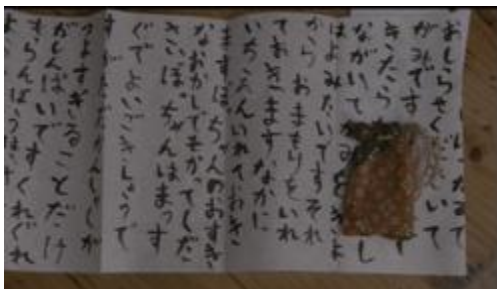 おしらせく
がみです いて
きたら
ながいて
はよみたいですそれ
から おまもりをいれ
ておきます なかに
いちえんいれておき
ますぼっちゃんのおすき
なおかしでもかってくだ
さいぼっちゃんはまっす
ぐでよいごきしょうで
すが かんしゃくが
つよすぎることだけ
がしんぱいですくれぐれ
もらんぼう